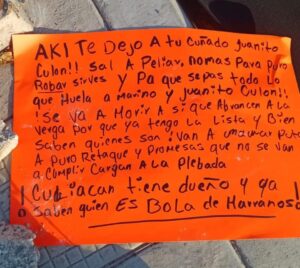 AKI Te DeJo A tu Cuñado Juanito
Culon!! Sal A Peliar, nomas Para Puro
Robar sirves y Pa que sepas todo Lo
que Huela a Marino y Juanito Culon!!
¡Se VA A Morir A Si que Abrancen A La
Verga por que ya tengo La Lista y Bien
Saben quienes son ¡VAn A
A Puro Retaque y Promesas que no se VAn
A Cumplir CArgAn A La Plebada
¡Culiacan tiene dueño y ya
Saben quien ES BoLa de MArranos!